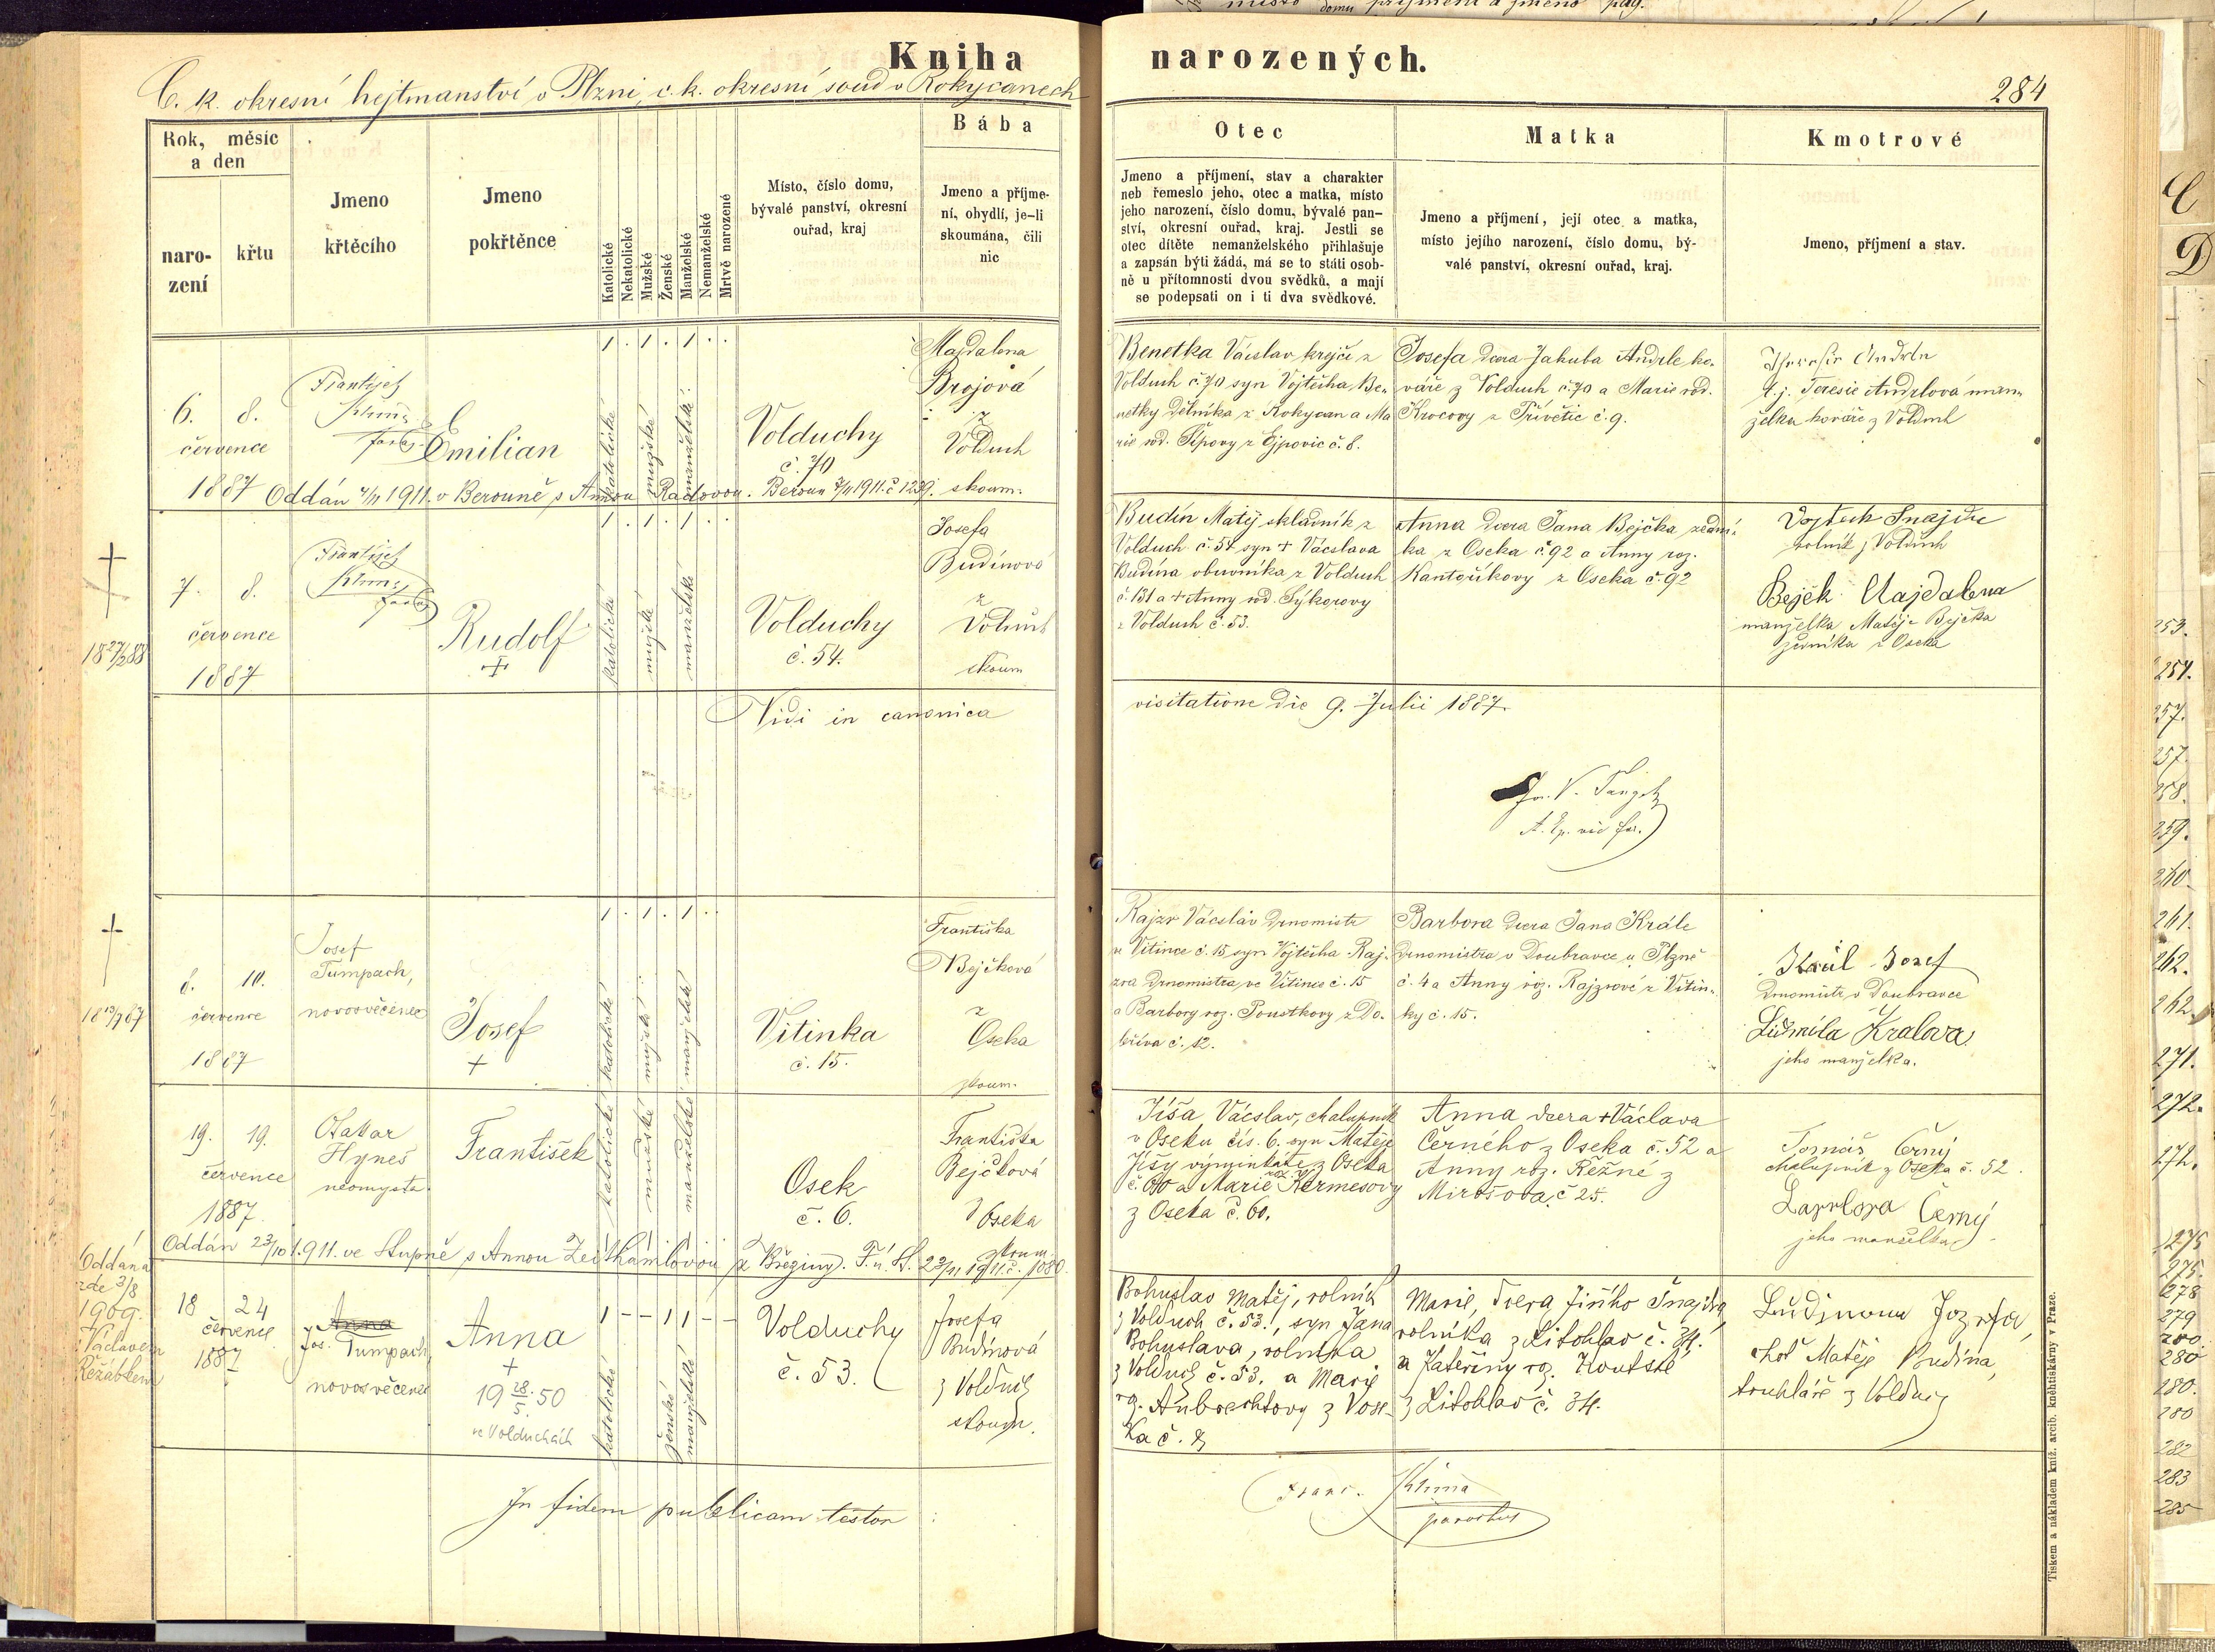 Kniha narozených.
C. k. okresní hejtmanství v Plzni, c. k. okresní soud v Rokycanech
284
Rok, měsíc
a den
naro-
zení
křtu
Jmeno
křtěcího
Jmeno
pokřtěnce
Katolické
Nekatolické
Mužské
Ženské
Manželské
Nemanželské
Mrtvě narozené
Místo, číslo domu,
bývalé panství, okresní
ouřad, kraj
Bába
Jmeno a příjme-
ní, obydlí, je-li
skoumána, čili
nic
Otec
Jmeno a příjmení, stav a charakter
neb řemeslo jeho, otec a matka, místo
jeho narození, číslo domu, bývalé pan-
ství, okresní ouřad, kraj. Jestli se
otec dítěte nemanželského přihlašuje
a zapsán býti žádá, má se to státi osob-
ně u přítomnosti dvou svědků, a mají
se podepsati on i ti dva svědkové.
Matka
Jmeno a příjmení, její otec a matka,
místo jejího narození, číslo domu, bý-
valé panství, okresní ouřad, kraj.
Kmotrové
Jmeno, příjmení a stav.
6. 8.
července
1887
František
Klima
farář
Emilian
1 . 1 . 1 . .
katolické
mužské
manželské
Volduchy
č. 70
Majdalena
Brojová
z
Volduch
skoum.
Benetka Václav krejčí z
Volduch č. 70 syn Vojtěcha Be-
netky dělníka z Rokycan a Ma
rie rod. Šípovy z Ejpovic č. 8.
Josefa dcera Jakuba Andrle ko-
váře z Volduch č. 70 a Marie rod.
Krocovy z Přívětic č. 9.
t. j. Teresie Andrlová man-
želka kováře z Volduch
Oddán 4/11 1911. v Berouně s Annou Radovou. Beroun 7/11 1911. č 1239.
7. 8.
července
1887
František
Klima
farář
Rudolf
+
1 . 1 . 1 . .
katolické
mužské
manželské
Volduchy
č. 54.
Josefa
Budínova
z
Volduch
skoum
Budín Matěj skladník z
Volduch č. 54 syn + Václava
Budína obuvníka z Volduch
č. 131 a + Anny rod. Sýkorovy
z Volduch č. 53.
Anna dcera Jana Bejčka zední-
ka z Oseka č. 92 a Anny roz.
Kantoříkovy z Oseka č. 92
Vojtěch Šnajdr
rolník z Volduch
Bejček Majdalena
manželka Matěje Bejčka
zedníka z Oseka
†
18 27/2 88
Vidi in canonica visitatione die 9. Julii 1887.
8. 10.
července
1887
Josef
Tumpach,
novosvěcenec
Josef
+
1 . 1 . 1 . .
katolické
mužské
manželské
Vitinka
č. 15.
Františka
Bejčková
z
Oseka
skoum.
Rajzr Václav drnomistr
ve Vitince č. 15 syn Vojtěcha Raj-
zra drnomistra, ve Vitince č. 15
a Barbory roz. Poustkovy z Do-
bříva č. 12.
Barbora dcera Jana Krále
drnomistra v Doubravce u Plzně
č. 4 a Anny roz. Rajzrové z Vitin-
ky č. 15.
Král Josef
drnomistr v Doubravce
Ludmila Kralova
jeho manželka.
†
18 13/9 87
19. 19.
července
1887
Otakar
Hyneš
neomysta.
František
katolické
mužské
manželské
Osek
č. 6.
Františka
Bejčková
z Oseka
skoum.
Jíša Václav, chalupník
v Oseku čís. 6. syn Matěje
Jíšy výminkáře z Oseka
č. 60 a Marie roz. Kermesovy
z Oseka č. 60.
Anna dcera + Václava
Černého z Oseka č. 52 a
Anny roz. Řežné z
Mirošova č 25.
Tomáš Černý
chalupník z Oseka č. 52.
Barbora Černý
jeho manželka
Oddán 23/10 1911. ve Stupně s Annou Zeithamlovou z Březiny. F. ú. St. 23/11 1911. č. 1080.
Oddána
zde 3/8
1909.
s Václavem
Řežábkem
18 24
července
1887
Anna
Jos. Tumpach,
novosvěcenec
Anna
+
19 28/5. 50
ve Volduchách
1 – – 1 1 – –
katolické
ženské
manželské
Volduchy
č. 53.
Josefa
Budínová
z Volduch
skoum.
Bohuslav Matěj, rolník
z Volduch č. 53., syn Jana
Bohuslava, rolníka
z Volduch č. 53. a Marie
rz. Aubrechtovy z Vose-
ka č. 8
Marie, dcera Jiřího Šnajdra,
rolníka z Litohlav č. 34.
a Kateřiny roz. Koutské
z Litohlav č. 34.
Budínova Jozefa,
choť Matěje Budína,
truhláře z Volduch
In fidem publicam testor :
Franc. Klima
parochus
Tiskem a nákladem kníž. arcib. knihtiskárny v Praze.